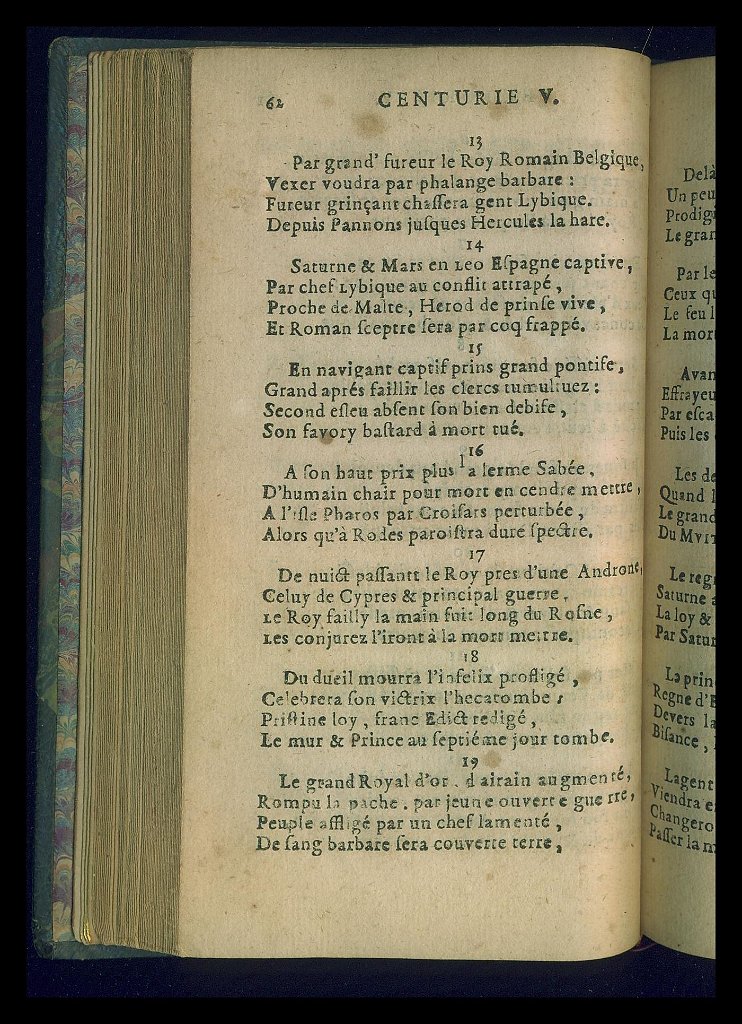 62 CENTURIE V.
13
Par grand' fureur le Roy Romain Belgique,
Vexer voudra par phalange barbare :
Fureur grinçant chaſſera gent Lybique.
Depuis Pannons juſques Hercules la hare.
14
Saturne & Mars en Leo Eſpagne captive,
Par chef Lybique au conflit attrapé,
Proche de Malte, Herod de prinſe vive,
Et Roman ſceptre ſera par coq frappé.
15
En navigant captif prins grand pontife,
Grand aprés faillir les clercs tumultuez :
Second eſleu abſent ſon bien debife,
Son favory baſtard à mort tué.
16
A ſon haut prix plus la lerme Sabée,
D'humain chair pour mort en cendre mettre,
A l'iſle Pharos par Croiſars perturbée,
Alors qu'à Rodes paroiſtra dure ſpectre.
17
De nuict paſſantt le Roy pres d'une Androne,
Celuy de Cypres & principal guerre,
Le Roy failly la main fuit long du Roſne,
Les conjurez l'iront à la mort mettre.
18
Du dueil mourra l'infelix profligé,
Celebrera ſon victrix l'hecatombe :
Priſtine loy, franc Edict redigé,
Le mur & Prince au ſeptiéme jour tombe.
19
Le grand Royal d'or, d'airain augmenté,
Rompu la pache, par jeune ouverte guerre,
Peuple affligé par un chef lamenté,
De ſang barbare ſera couverte terre,
Delà
Un peu
Prodig
Le gran
Par le
Ceux qu
Le feu l
La mor
Avan
Effrayeu
Par eſca
Puis les
Les de
Quand
Le grand
Du
Le reg
Saturne
La loy &
Par Satur
La prin
Regne d'E
Devers la
Biſance,
Lagent
Viendra e
Changero
Paſſer la m